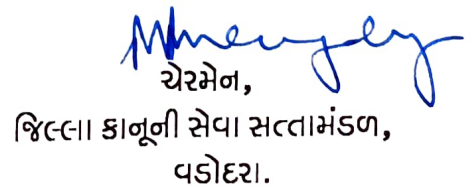 ચેરમેન,
જિલ્લા કાનૂની સેવા સત્તામંડળ,
વડોદરા.